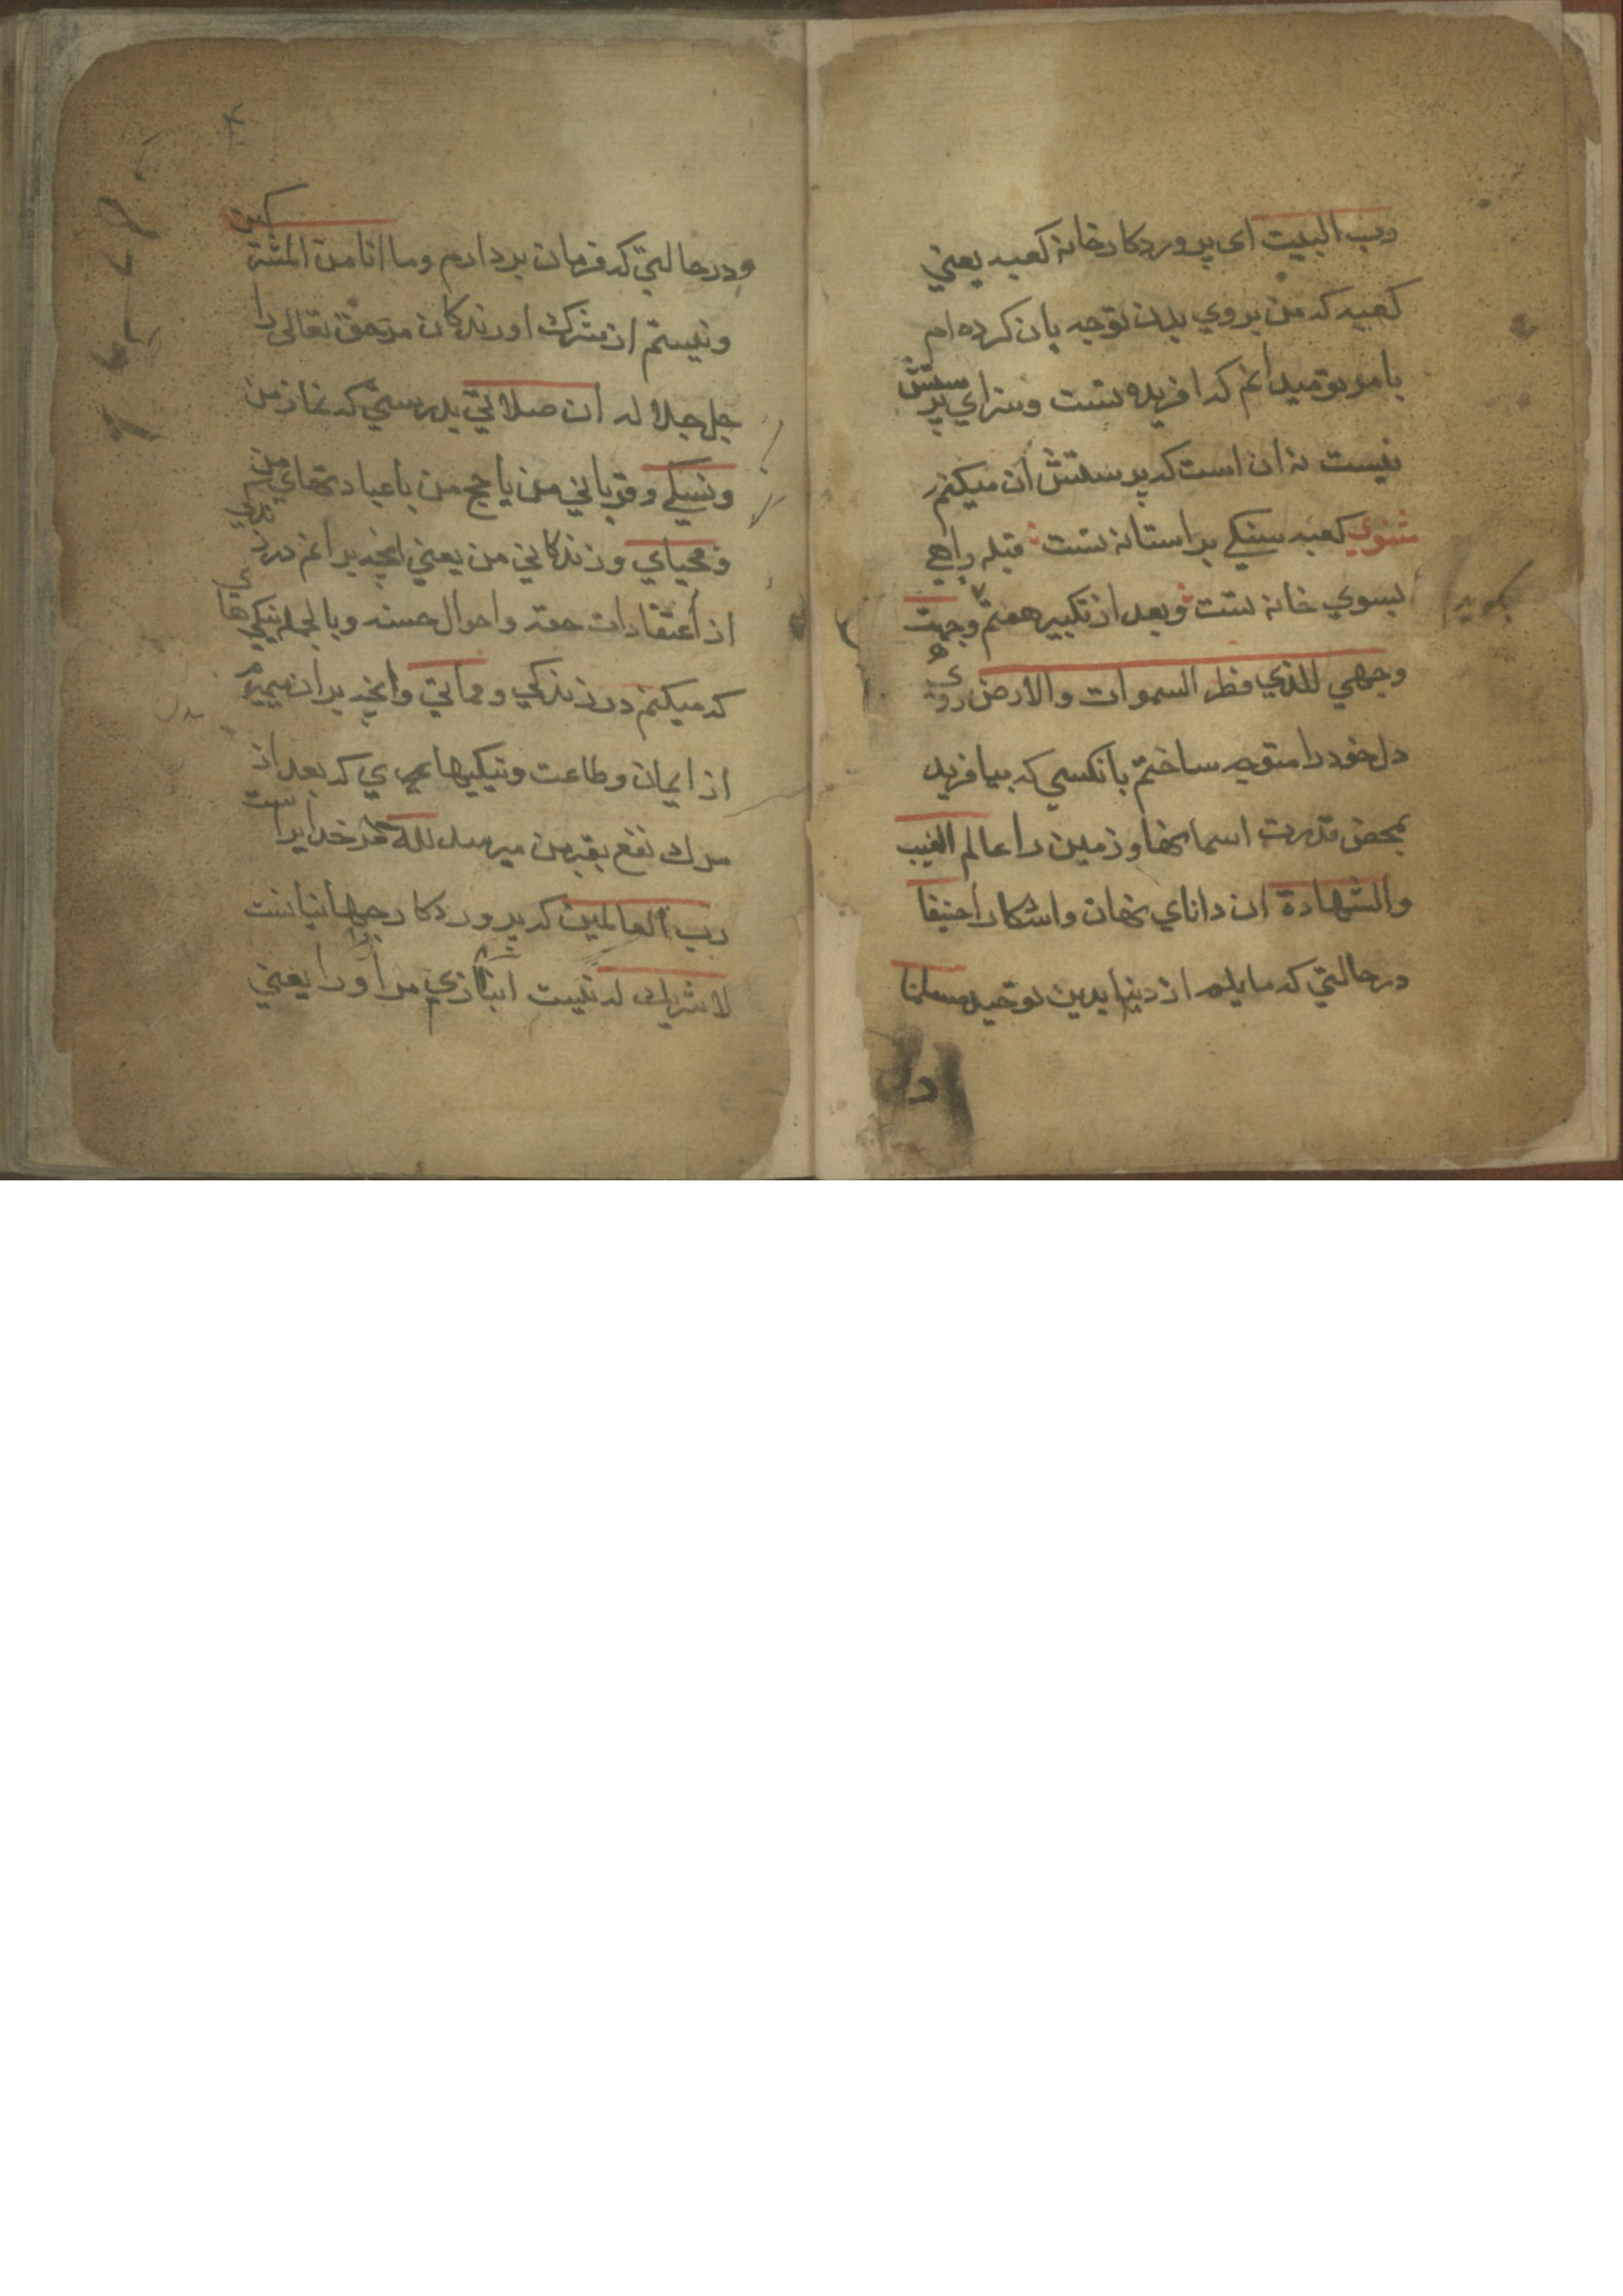 رب البيت ای پروردكار خانه كعبه يعني
كعبه كه من بروي بدن توجه بان كرده ام
بامر تو ميدانم كه افريده تست وسزاي پرستش
نيست نه ان است كه پرستش ان ميكنم
مثنوي كعبه سنكي بر استانه تست قبله راهي
بسوي خانه تست وبعد از تكبير هفتم وجهت
بكويد
وجهي للذي فطر السموات والارض روي
دل خود را متوجه ساختم بانكسي كه بيافريد
بمحض قدرت اسمانها وزمين را عالم الغيب
والشهادة ان داناي نهان واشكارا حنيفا
درحالتي كه مايلم از دينها بدين توحيد مسلما
ودرحالتي كه فرمان بردارم وما انا من المشركين
ونيستم از شرك اورندكان مرحق تعالی را
جل جلاله ان صلاتي بدرستي كه نماز من
ونسكي وقرباني من يا حج من يا عبادتهاي من
ومحياي وزندكاني من يعني انچه برانم در زندكي
از اعتقادات حقه واحوال حسنه وبالجمله نيكيها
كه ميكنم در زندكي ومماتي وانچه بران ميميرم
از ايمان وطاعت ونيكيهاي كه بعد از
مرك نفع بقبر من ميرسد لله مر خدايراست
رب العالمين كه پروردكار جهانيانست
لا شريك له نيست انبازي مر او را يعني